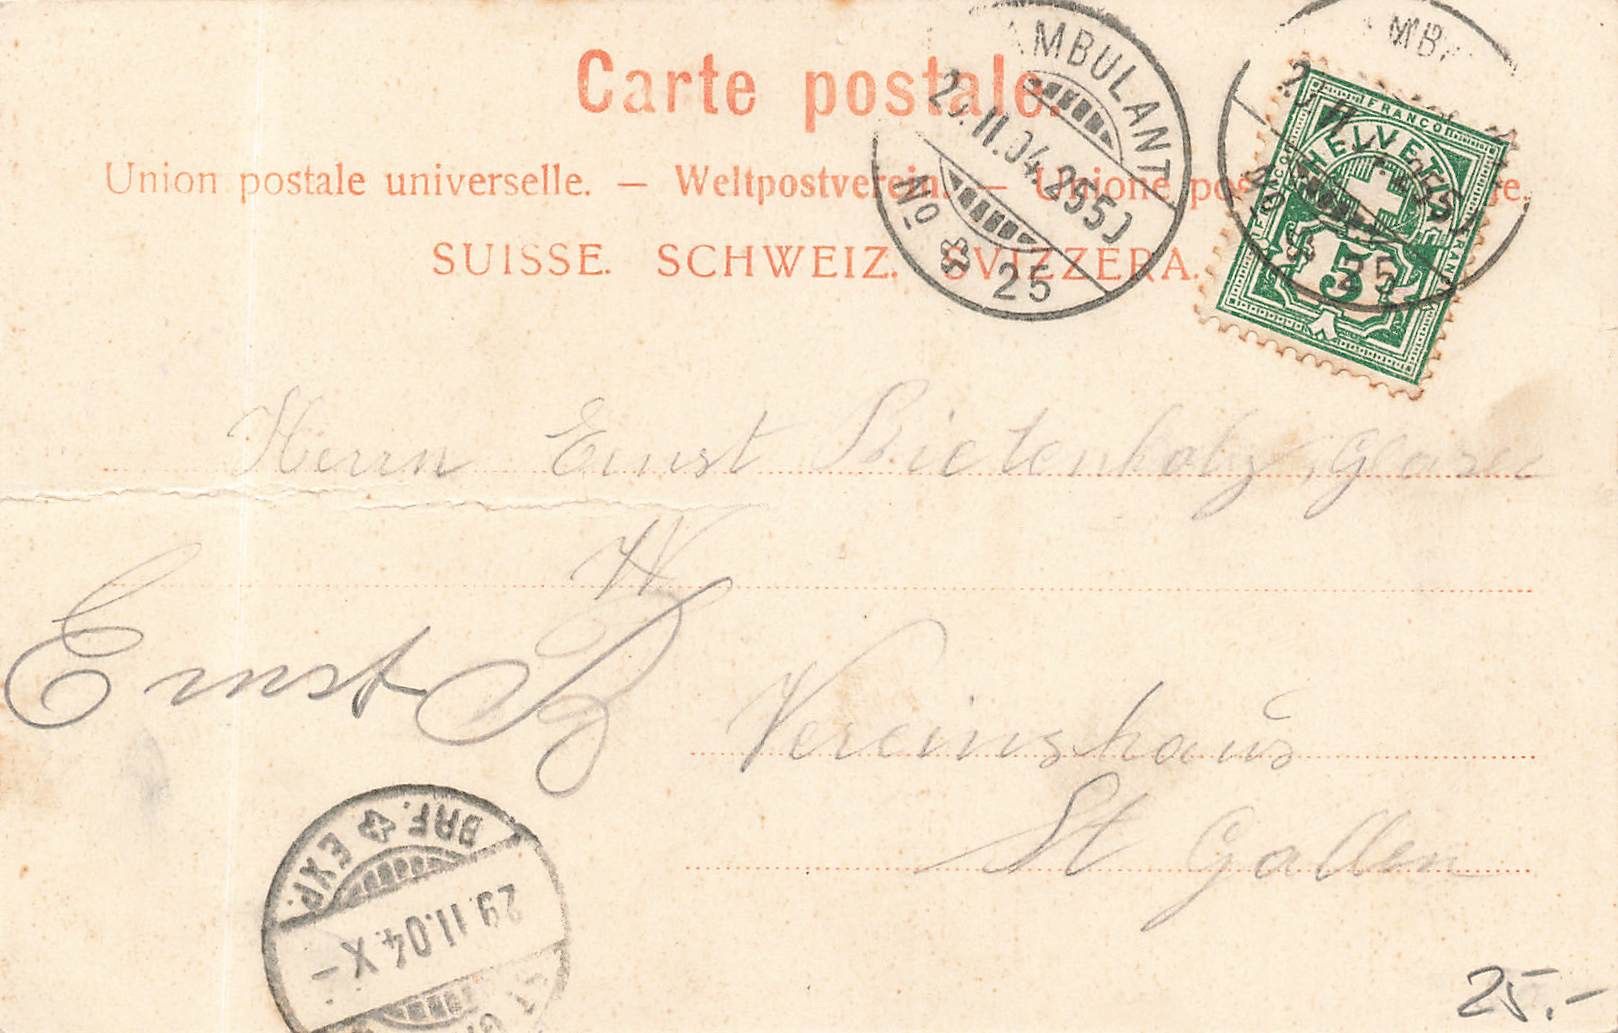 Carte postale.
Union postale universelle. — Weltpostverein. — Unione pos
SUISSE. SCHWEIZ. SVIZZERA.
AMBULANT
29.II.04.255
No 25
AMB
25
FRANCO
HELVETIA
5
Herrn Ernst Bietenholz, Glaser
Ernst B
Vereinshaus
St Gallen
BRF. EXP.
29.II.04.X–
25.-